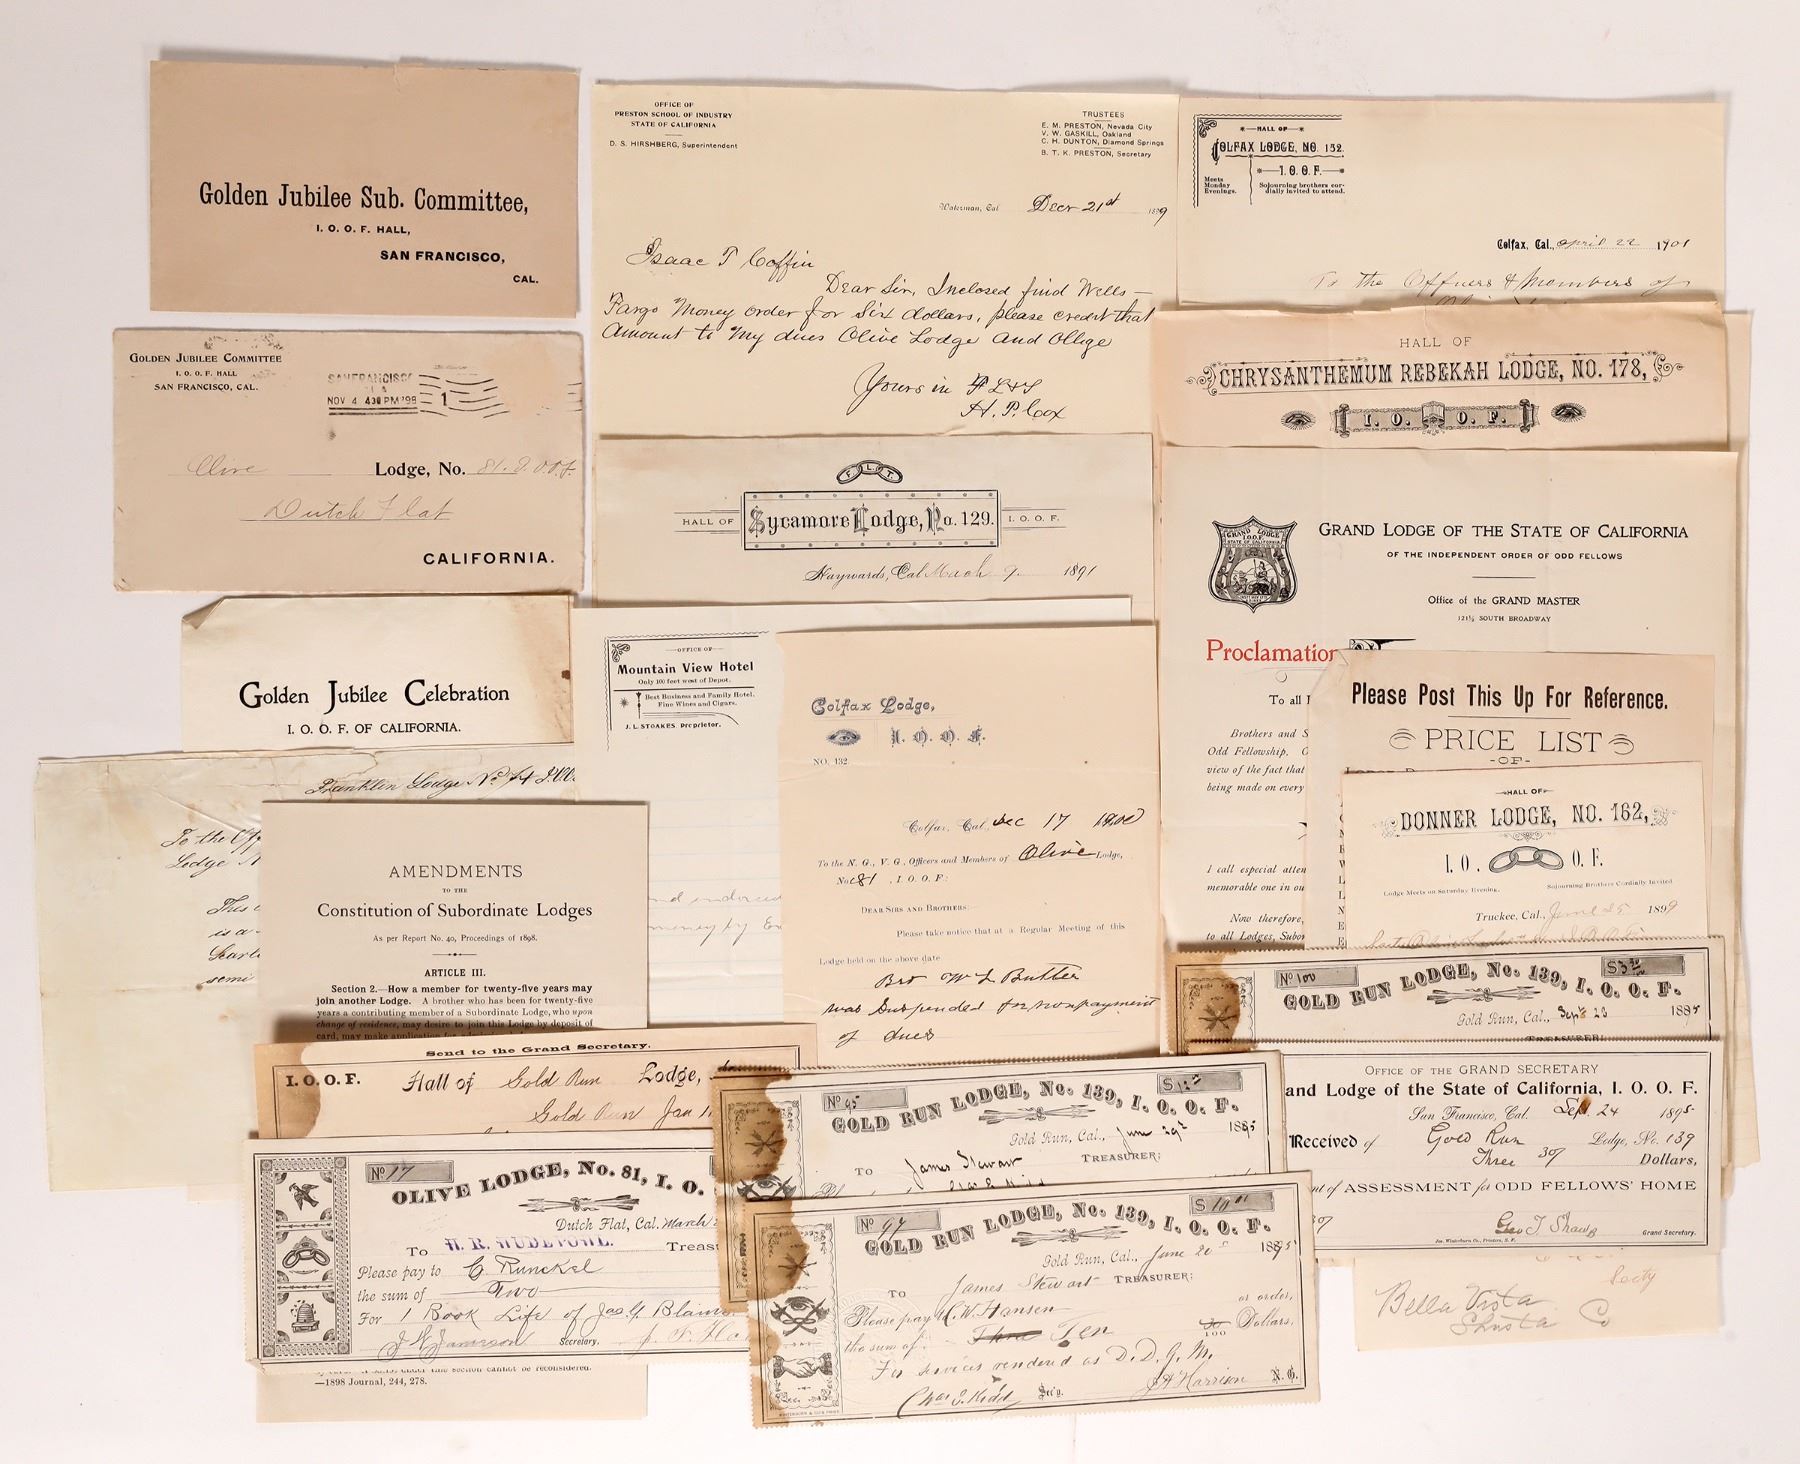 Golden Jubilee Sub. Committee,
I. O. O. F. HALL,
SAN FRANCISCO,
CAL.
GOLDEN JUBILEE COMMITTEE
I. O. O. F. HALL
SAN FRANCISCO, CAL.
SAN FRANCISCO
NOV 4 430 PM '98
1
Olive Lodge, No. 81. I.O.O.F.
Dutch Flat
CALIFORNIA.
Golden Jubilee Celebration
I. O. O. F. OF CALIFORNIA.
Franklin Lodge No 74 I.O.O.
To the Off
Lodge N
This
is a
semi
AMENDMENTS
TO THE
Constitution of Subordinate Lodges
As per Report No. 40, Proceedings of 1898.
ARTICLE III.
Section 2.—How a member for twenty-five years may
join another Lodge. A brother who has been for twenty-five
years a contributing member of a Subordinate Lodge, who upon
change of residence, may desire to join this Lodge by deposit of
card, may make application for
section cannot be reconsidered.
—1898 Journal, 244, 278.
OFFICE OF
PRESTON SCHOOL OF INDUSTRY
STATE OF CALIFORNIA
D. S. HIRSHBERG, Superintendent
TRUSTEES
E. M. PRESTON, Nevada City
V. W. GASKILL, Oakland
C. H. DUNTON, Diamond Springs
B. T. K. PRESTON, Secretary
Waterman, Cal Decr 21st 1899
Isaac T Coffin
Dear Sir, Inclosed find Wells–
Fargo Money order for Six dollars, please credit that
Amount to my dues Olive Lodge and Oblige
Yours in F L & T
H. P. Cox
F. L. T.
HALL OF Sycamore Lodge, No. 129. I. O. O. F.
Haywards, Cal March 9 1891
OFFICE OF
Mountain View Hotel
Only 100 feet west of Depot.
Best Business and Family Hotel.
Fine Wines and Cigars.
J. L. STOAKES Proprietor.
nd indorsed
money by
Colfax Lodge,
I. O. O. F.
NO. 132.
Colfax, Cal., Dec 17 1900
To the N. G., V. G., Officers and Members of Olive Lodge,
No. 81, I. O. O. F:
DEAR SIRS AND BROTHERS:—
Please take notice that at a Regular Meeting of this
Lodge held on the above date
Bro W L Butler
was Suspended for nonpayment
of dues
HALL OF
COLFAX LODGE, NO. 132.
I. O. O. F.
Meets
Monday
Evenings.
Sojourning brothers cor-
dially invited to attend.
Colfax, Cal., April 22 1901
To the Officers & Members of
HALL OF
CHRYSANTHEMUM REBEKAH LODGE, NO. 178,
I. O. O. F.
GRAND LODGE
I.O.O.F.
STATE OF CALIFORNIA
GRAND LODGE OF THE STATE OF CALIFORNIA
OF THE INDEPENDENT ORDER OF ODD FELLOWS
Office of the GRAND MASTER
121½ SOUTH BROADWAY
Proclamation
To all
Brothers and S
Odd Fellowship.
view of the fact that
being made on every
I call especial atten
memorable one in ou
Now therefore,
to all Lodges, Subor
Please Post This Up For Reference.
PRICE LIST
-OF-
HALL OF
DONNER LODGE, NO. 162,
I. O. O. F.
Lodge Meets on Saturday Evening.
Sojourning Brothers Cordially Invited
Truckee, Cal., June 25 1899
No 100
GOLD RUN LODGE, No. 139, I. O. O. F.
Gold Run, Cal., Sept 23 1895
TREASURER:
OFFICE OF THE GRAND SECRETARY
and Lodge of the State of California, I. O. O. F.
San Francisco, Cal. Sept. 24 1895
Received of Gold Run Lodge, No. 139
Three 30/ Dollars,
nt of ASSESSMENT for ODD FELLOWS' HOME
Geo T Shaw
Grand Secretary.
Jos. Winterburn Co., Printers, S. F.
Bella Vista
Shasta Co
Secty
Send to the Grand Secretary.
I. O. O. F. Hall of Gold Run Lodge,
Gold Run Jan
No 17
OLIVE LODGE, No. 81, I. O.
Dutch Flat, Cal. March
To Treas
Please pay to C. Runckel
the sum of Two
For 1 Book Life of Jas. G Blaine
Secretary.
No 95
GOLD RUN LODGE, No. 139, I. O. O. F.
Gold Run, Cal., June 29th 1895
To James Stewart TREASURER:
No 94 $10 00
GOLD RUN LODGE, No. 139, I. O. O. F.
Gold Run, Cal., June 20 1895
To James Stewart TREASURER:
Please pay C. W. Hansen or order,
the sum of Ten 00/100 Dollars,
For services rendered as D. D. G. M.
Chas S. Kidd Sec'y. J H Harrison N. G.